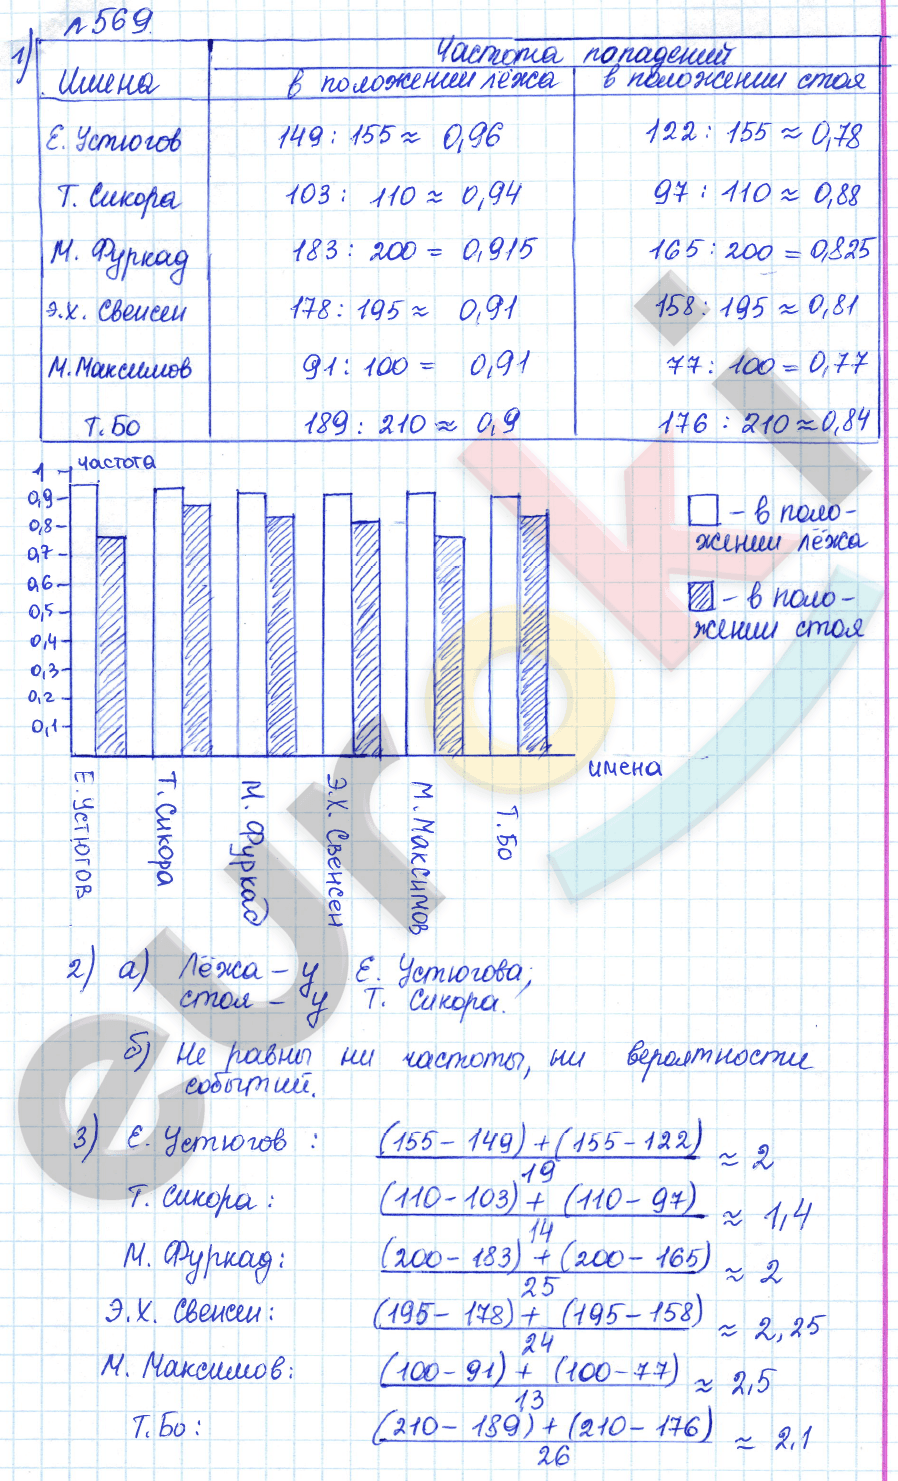 №569.
1)
Частота попаданий
Имена в положении лёжа в положении стоя
Е. Устюгов 149 : 155 ≈ 0,96 122 : 155 ≈ 0,78
Т. Сикора 103 : 110 ≈ 0,94 97 : 110 ≈ 0,88
М. Фуркад 183 : 200 = 0,915 165 : 200 = 0,825
Э.Х. Свенсен 178 : 195 ≈ 0,91 158 : 195 ≈ 0,81
М. Максимов 91 : 100 = 0,91 77 : 100 = 0,77
Т. Бо 189 : 210 ≈ 0,9 176 : 210 ≈ 0,84
частота
1
0,9
0,8
0,7
0,6
0,5
0,4
0,3
0,2
0,1
- в поло-
жении лёжа
- в поло-
жении стоя
имена
Е. Устюгов
Т. Сикора
М. Фуркад
Э.Х. Свенсен
М. Максимов
Т. Бо
2) а) Лёжа – у Е. Устюгова;
стоя – у Т. Сикора.
б) Не равны ни частоты, ни вероятности
событий.
3) Е. Устюгов : (155 – 149) + (155 – 122) ≈ 2
19
Т. Сикора : (110 - 103) + (110 – 97) ≈ 1,4
14
М. Фуркад : (200 – 183) + (200 – 165) ≈ 2
25
Э.Х. Свенсен : (195 – 178) + (195 – 158) ≈ 2,25
24
М. Максимов : (100 – 91) + (100 – 77) ≈ 2,5
13
Т. Бо : (210 – 189) + (210 – 176) ≈ 2.1
26
euroki